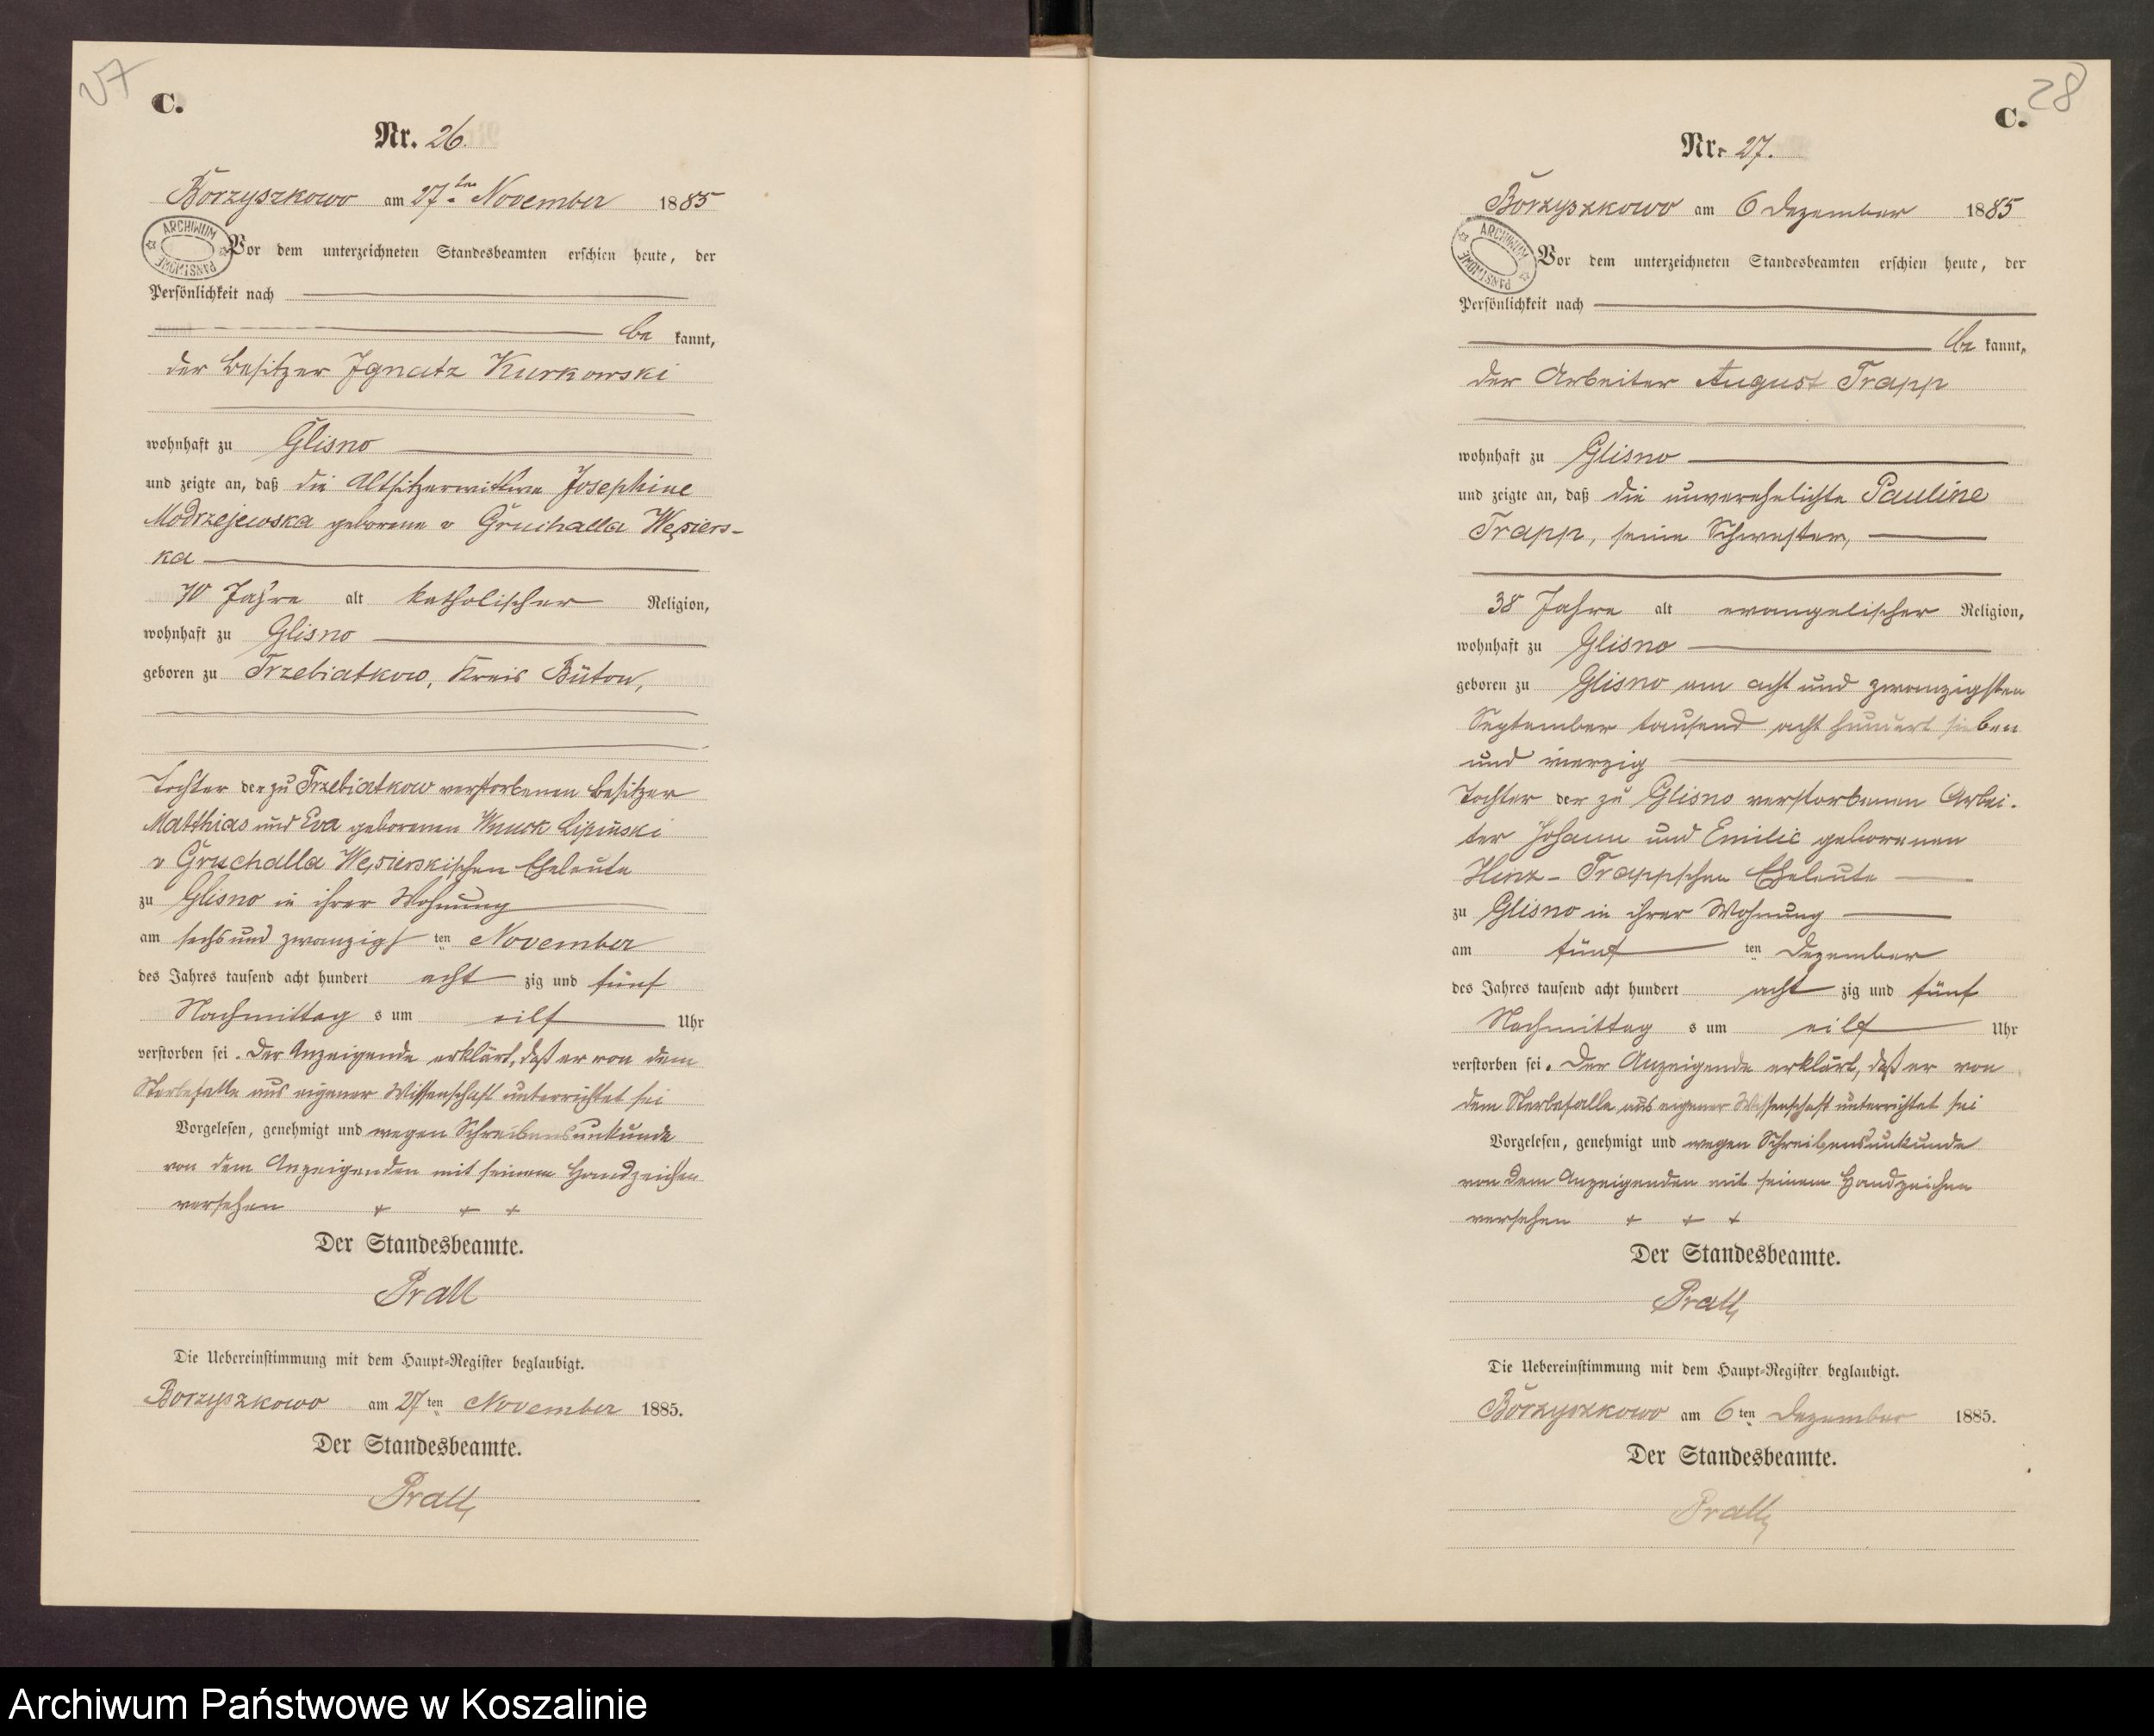 27
C.
Nr. 26.
Borzyszkowo am 27ten November 1885
ARCHIWUM PAŃSTWOWE
Vor dem unterzeichneten Standesbeamten erschien heute, der
Persönlichkeit nach
be kannt,
der Besitzer Ignatz Kurkowski
wohnhaft zu Glisno
und zeigte an, daß die Altsitzerwittwe Josephine
Modrzejewska geborene v Gruchalla Węsiers-
ka
70 Jahre alt katholischer Religion,
wohnhaft zu Glisno
geboren zu Trzebiatkow, Kreis Bütow,
Tochter der zu Trzebiatkow verstorbenen Besitzer
Matthias und Eva geborenen Wnuck Lipinski
v Gruchalla Węsierskischen Eheleute
zu Glisno in ihrer Wohnung
am sechs und zwanzigsten November
des Jahres tausend acht hundert acht zig und fünf
Nachmittag s um eilf Uhr
verstorben sei. Der Anzeigende erklärt, daß er von dem
Sterbefalle aus eigener Wissenschaft unterrichtet sei
Vorgelesen, genehmigt und wegen Schreibensunkunde
von dem Anzeigenden mit seinem Handzeichen
versehen + + +
Der Standesbeamte.
Prall
Die Uebereinstimmung mit dem Haupt-Register beglaubigt.
Borzyszkowo am 27ten November 1885.
Der Standesbeamte.
Prall
28
C.
Nr. 27.
Borzyszkowo am 6 Dezember 1885
ARCHIWUM PAŃSTWOWE
Vor dem unterzeichneten Standesbeamten erschien heute, der
Persönlichkeit nach
be kannt,
der Arbeiter August Trapp
wohnhaft zu Glisno
und zeigte an, daß die unverehelichte Pauline
Trapp, seine Schwester,
38 Jahre alt evangelischer Religion,
wohnhaft zu Glisno
geboren zu Glisno am acht und zwanzigsten
September tausend acht hundert sieben
und vierzig
Tochter der zu Glisno verstorbenen Arbei-
ter Johann und Emilie geborenen
Hinz - Trappschen Eheleute
zu Glisno in ihrer Wohnung
am fünf ten Dezember
des Jahres tausend acht hundert acht zig und fünf
Nachmittag s um eilf Uhr
verstorben sei. Der Anzeigende erklärt, daß er von
dem Sterbefalle aus eigener Wissenschaft unterrichtet sei
Vorgelesen, genehmigt und wegen Schreibensunkunde
von dem Anzeigenden mit seinem Handzeichen
versehen + + +
Der Standesbeamte.
Prall
Die Uebereinstimmung mit dem Haupt-Register beglaubigt.
Borzyszkowo am 6ten Dezember 1885.
Der Standesbeamte.
Prall
Archiwum Państwowe w Koszalinie